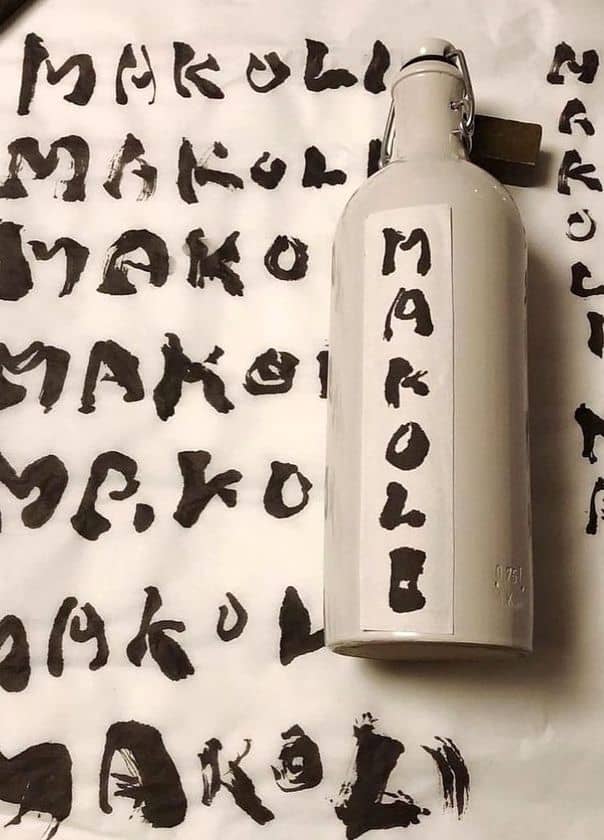 MAKOLI
MAKOLI
MAKO
MAKO
MA.KO
MAKOL
MAKOLI
MAKOLI
0,75l
MAKOLI
MA